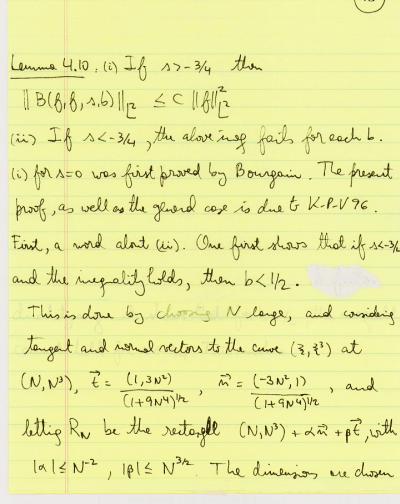 Lemma 4.10. (i) If s > -3/4 then
|| B(f, f, s, b) ||_{L^2} ≤ C ||f||_{L^2}^2
(iii) If s < -3/4, the above ineq fails for each b.
(i) for s=0 was first proved by Bourgain. The present
proof, as well as the general case is due to K-P-V 96.
First, a word about (ii). One first shows that if s<-3/4
and the inequality holds, then b < 1/2.
This is done by choosing N large, and considering
tangent and normal vectors to the curve (ξ, ξ^3) at
(N, N^3), \vec{t} = (1, 3N^2)/(1+9N^4)^{1/2}, \vec{n} = (-3N^2, 1)/(1+9N^4)^{1/2}, and
letting R_N be the rectangle (N, N^3) + α\vec{n} + β\vec{t}, with
|α| ≤ N^{-2}, |β| ≤ N^{3/2}. The dimensions are chosen